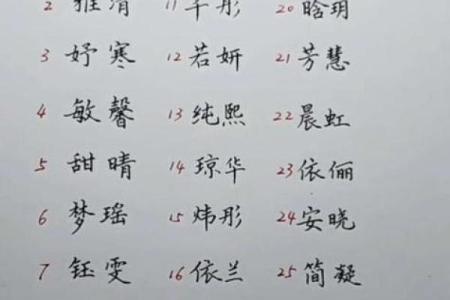 2 雅清 11 芊彤 20 晗玥
3 妤寒 12 若妍 21 芳慧
4 敏馨 13 纯熙 22 晨虹
5 甜晴 14 琼华 23 依俪
6 梦瑶 15 炜彤 24 安晓
7 钰雯 16 依兰 25 简凝